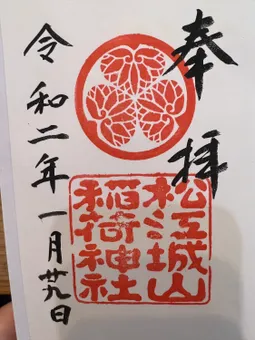 奉拝
松江城山
稲荷神社
令和二年一月廿九日